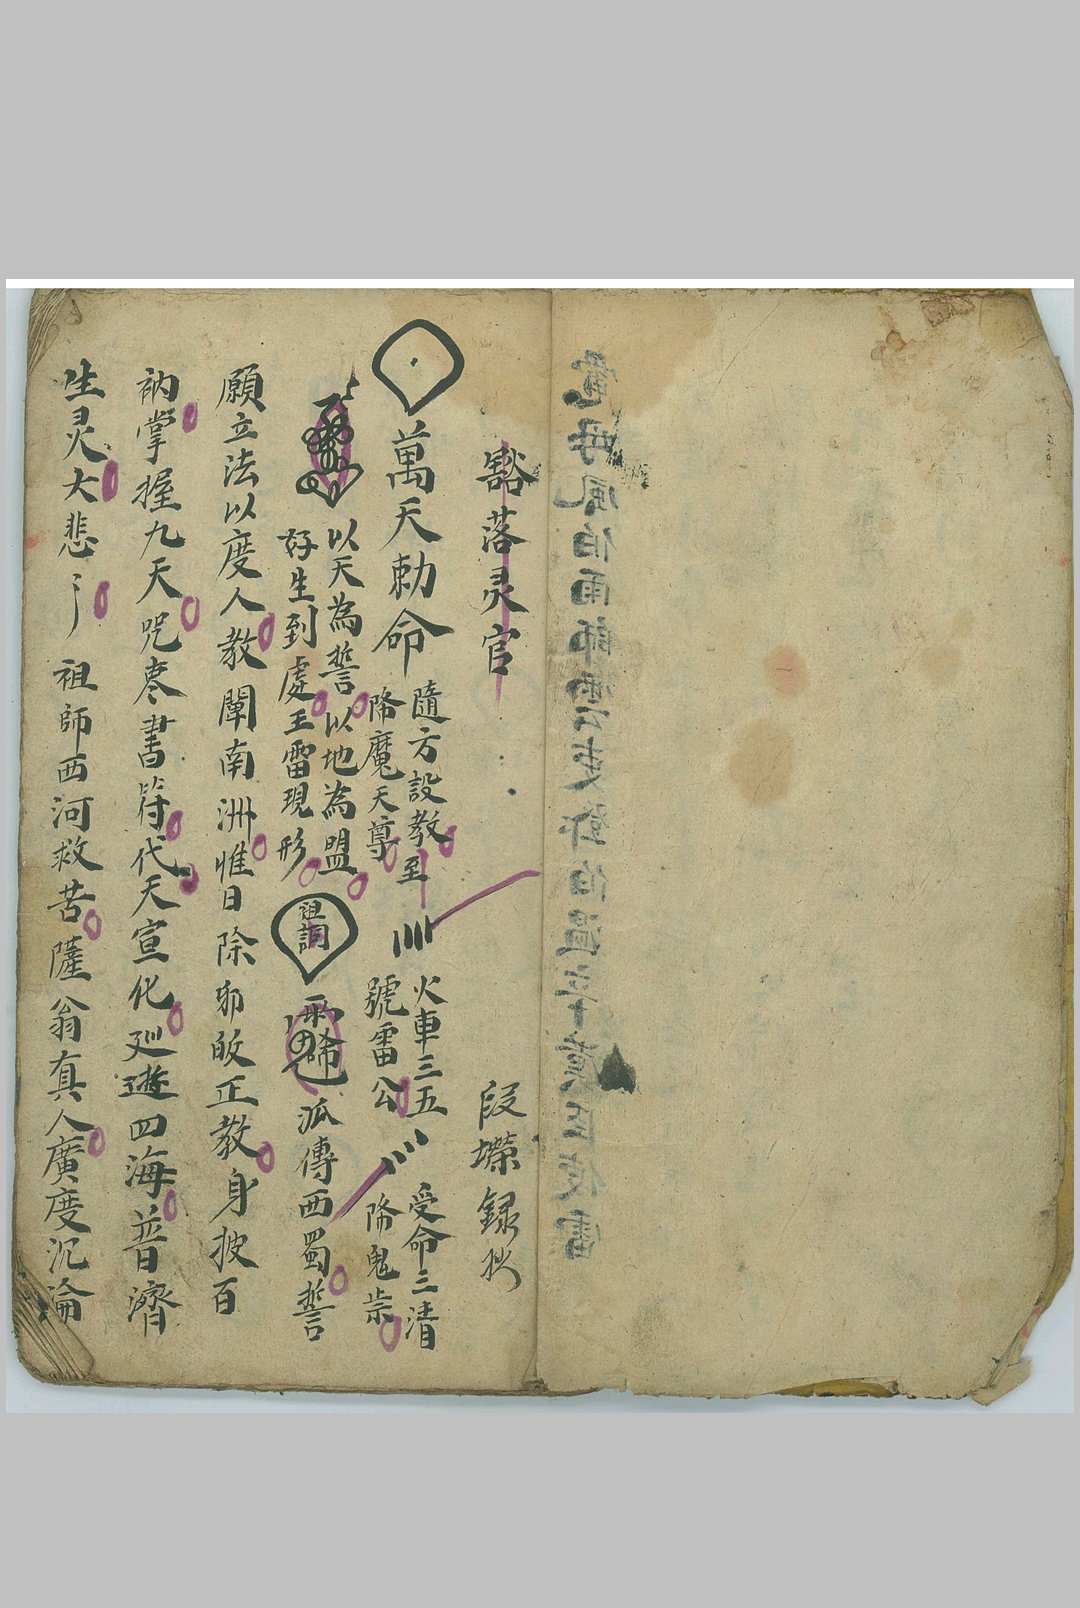 豁落灵官
段 録
萬天勅命
隨方設教至
降魔天尊
火車三五
號雷公
受命三清
降鬼祟
以天為誓以地為盟
好生到處王雷現形
祖詞
派傳西蜀誓
願立法以度人教闡南洲惟日除邪皈正教身披百
衲掌握九天咒枣書符代天宣化廵遊四海普濟
生灵大悲
祖師西河救苦薩翁真人廣度沉淪
電母風伯雨師